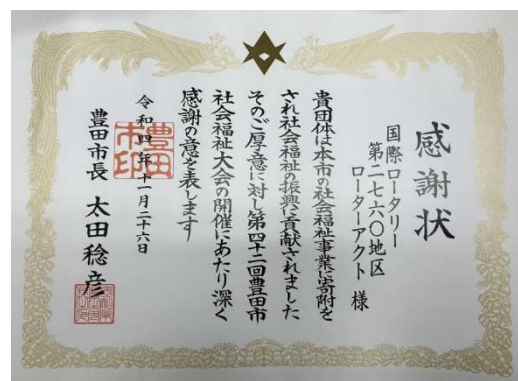 感謝状
国際ロータリー
第二七六〇地区
ローターアクト 様
貴団体は本市の社会福祉事業に寄附を
され社会福祉の振興に貢献されました
そのご厚意に対し第四十二回豊田市
社会福祉大会の開催にあたり深く
感謝の意を表します
令和四年十一月二十六日
豊田市印
豊田市長 太田稔彦